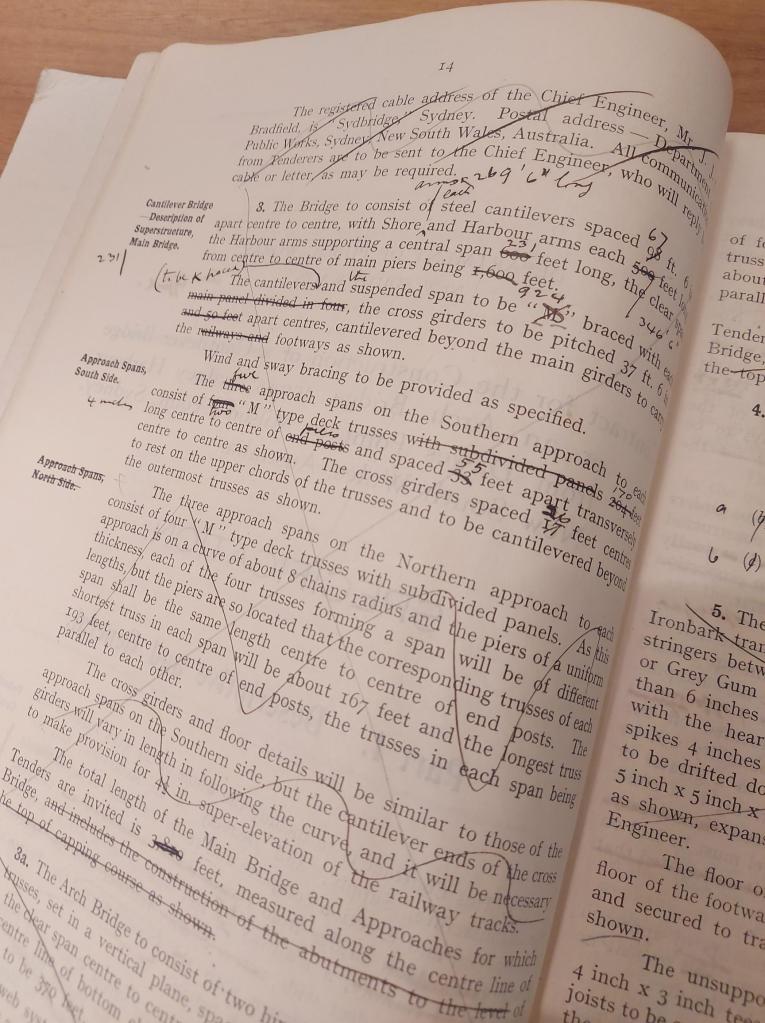 14
The registered cable address of the Chief Engineer, Mr. J. J.
Bradfield, is "Sydbridge," Sydney. Postal address — Department
Public Works, Sydney, New South Wales, Australia. All communica
from Tenderers are to be sent to the Chief Engineer, who will reply
cable or letter, as may be required.
arms each 269' 6" long
Cantilever Bridge
—Description of
Superstructure,
Main Bridge.
3. The Bridge to consist of steel cantilevers spaced 67 98 ft. 6
apart centre to centre, with Shore and Harbour arms each 500 feet long,
the Harbour arms supporting a central span 600 feet long, the clear
from centre to centre of main piers being 1,600 feet.
346' 6"
924
231
The cantilevers and the suspended span to be "M" braced with each
main panel divided in four, the cross girders to be pitched 37 ft. 6 in
and 50 feet apart centres, cantilevered beyond the main girders to carry
the railways and footways as shown.
Wind and sway bracing to be provided as specified.
Approach Spans,
South Side.
The three five approach spans on the Southern approach to each
consist of four two "M" type deck trusses with subdivided panels 204 170 feet
long centre to centre of end posts and spaced 33 55 feet apart transversely
centre to centre as shown. The cross girders spaced 17 feet centres
to rest on the upper chords of the trusses and to be cantilevered beyond
the outermost trusses as shown.
Approach Spans,
North Side.
The three approach spans on the Northern approach to each
consist of four "M" type deck trusses with subdivided panels. As this
approach is on a curve of about 8 chains radius and the piers of a uniform
thickness, each of the four trusses forming a span will be of different
lengths, but the piers are so located that the corresponding trusses of each
span shall be the same length centre to centre of end posts. The
shortest truss in each span will be about 167 feet and the longest truss
193 feet, centre to centre of end posts, the trusses in each span being
parallel to each other.
The cross girders and floor details will be similar to those of the
approach spans on the Southern side, but the cantilever ends of the cross
girders will vary in length in following the curve, and it will be necessary
to make provision for 4½ in. super-elevation of the railway tracks.
The total length of the Main Bridge and Approaches for which
Tenders are invited is feet, measured along the centre line of
Bridge, and includes the construction of the abutments to the level of
the top of capping course as shown.
3a. The Arch Bridge to consist of two hin
trusses, set in a vertical plane, spa
the clear span centre to centr
centre line of bottom
to be 350 feet
web sys
of fe
truss
about
parall
Tender
Bridge,
the top
4.
a
b
5. The
Ironbark tran
stringers betw
or Grey Gum
than 6 inches
with the hear
spikes 4 inches
to be drifted do
5 inch x 5 inch x
as shown, expans
Engineer.
The floor o
floor of the footwa
and secured to tra
shown.
The unsuppo
4 inch x 3 inch tees
joists to be
the